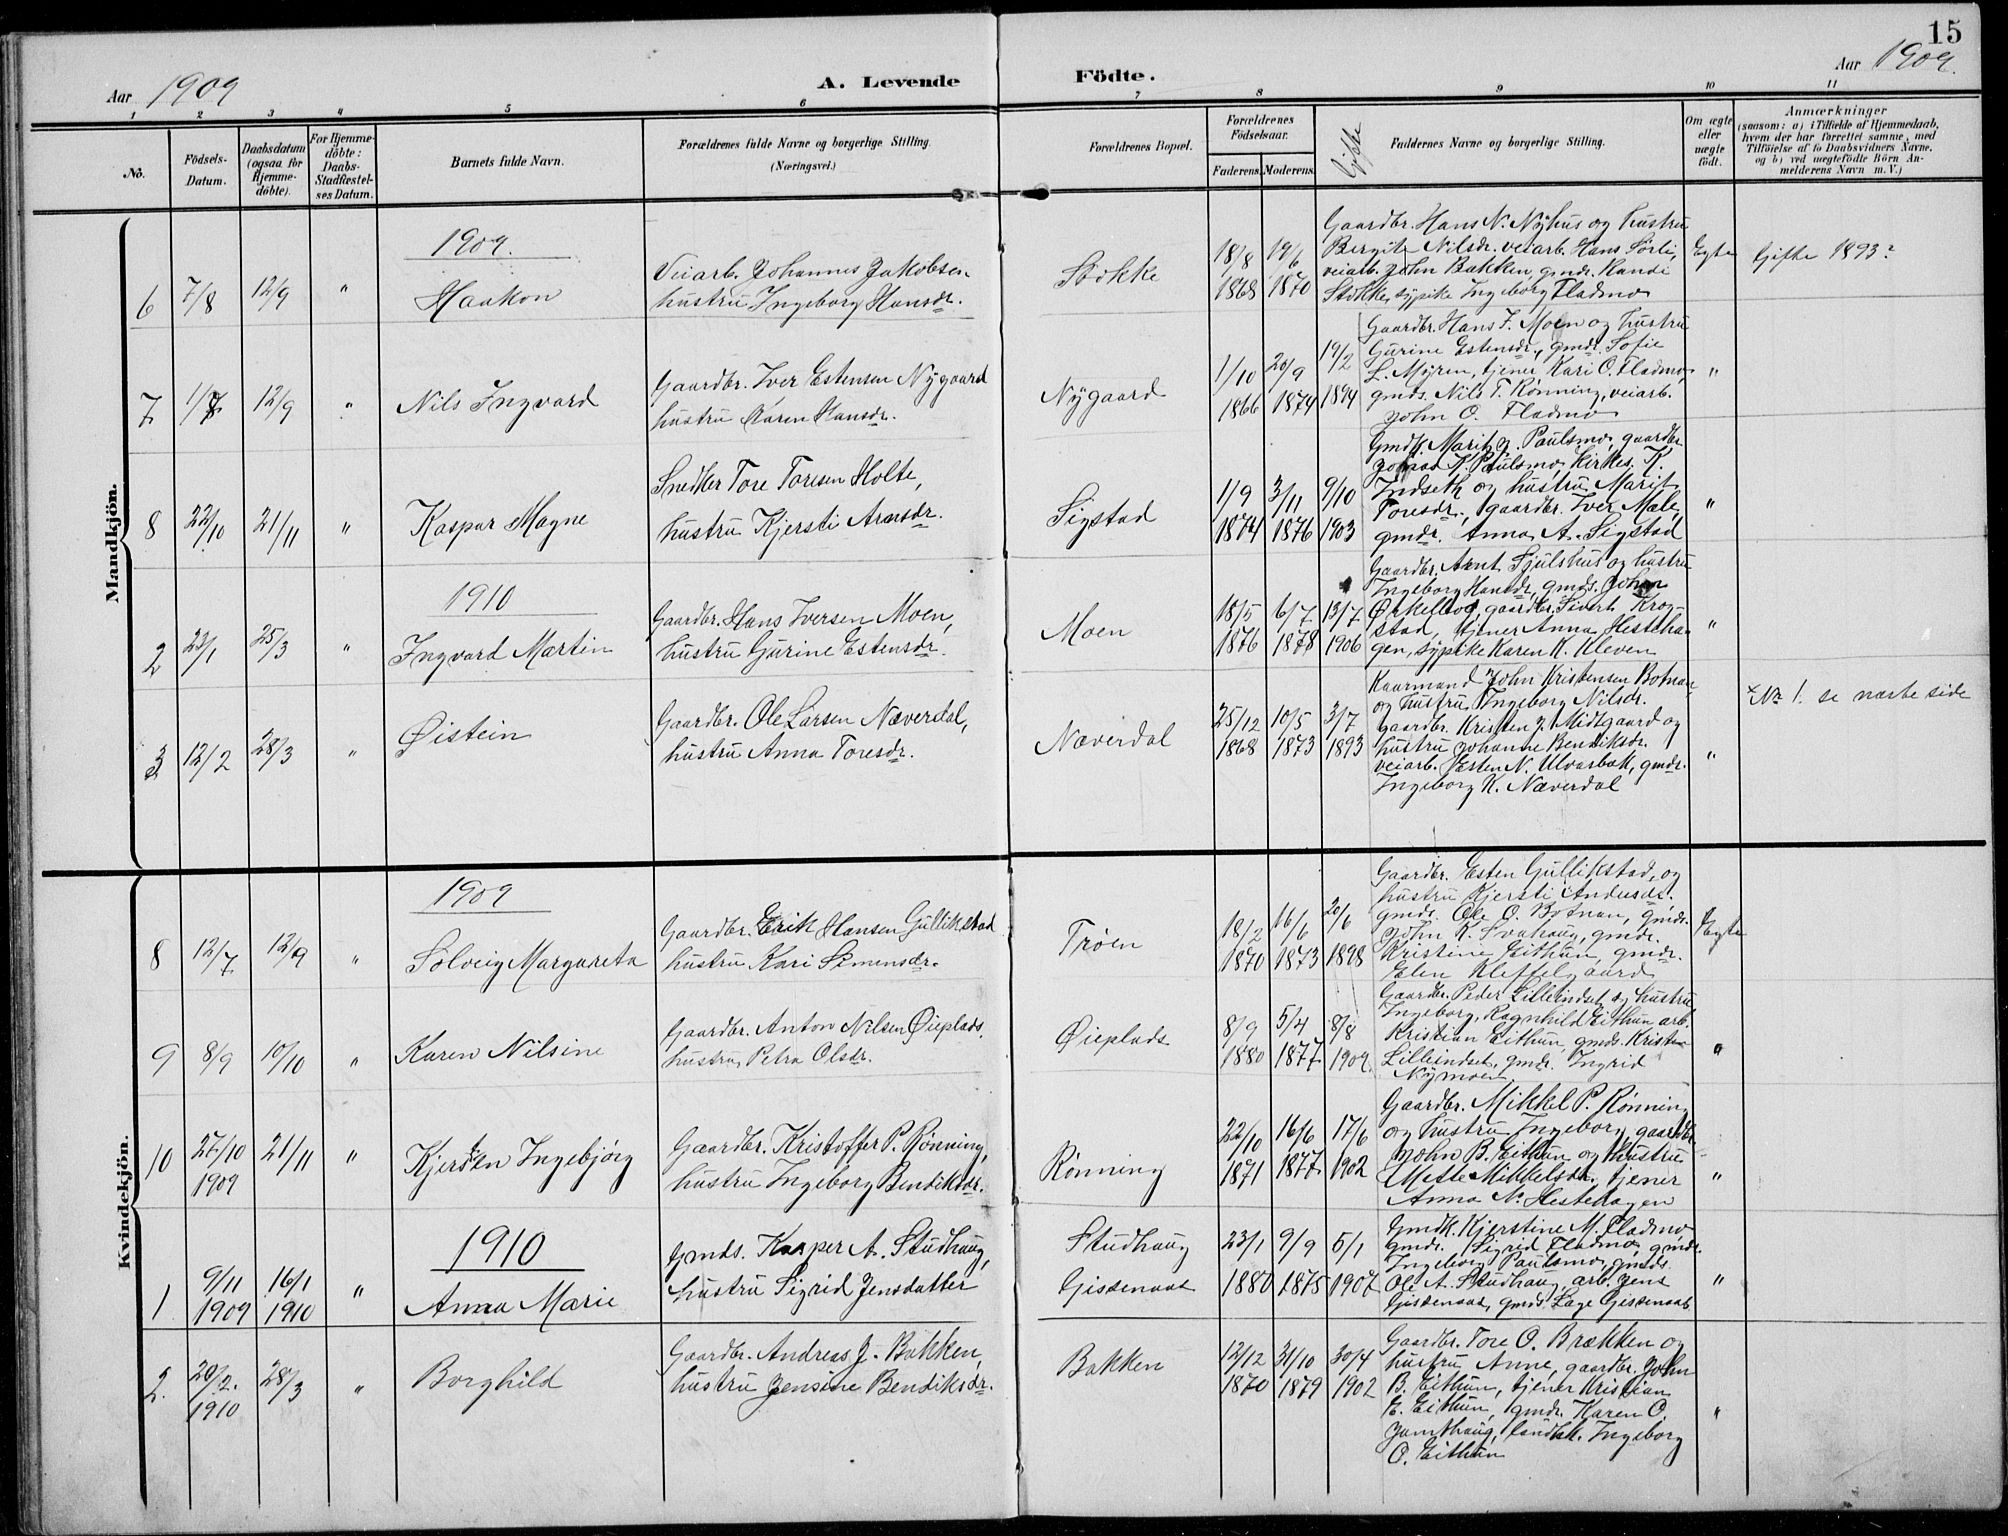 15
Aar 1909
A. Levende Födte.
Aar 1909.
1 2 3 4 5 6 7 8 9 10 11
No.
Födsels-
Datum.
Daabsdatum
(ogsaa for
Hjemme-
döbte).
For Hjemme-
döbte:
Daabs-
Stadfæstel-
ses Datum.
Barnets fulde Navn.
Forældrenes fulde Navne og borgerlige Stilling.
(Næringsvei.)
Forældrenes Bopæl.
Forældrenes
Födselsaar.
Faderens. Moderens.
Gifte
Faddernes Navne og borgerlige Stilling.
Om ægte
eller
uægte
födt.
Anmærkninger
(saasom: a) i Tilfælde af Hjemmedaab,
hvem der har forrettet samme, med
Tilföielse af to Daabsvidners Navne,
og b) ved uægtefödte Börn An-
melderens Navn m. V.)
Mandkjön.
1909.
6 7/8 12/9 " Haakon
Veiarb. Johannes Jakobsen
hustru Ingeborg Hansdr.
Stokke
18/8 19/6
1868 1870
Gaardbr. Hans N. Nyhus og hustru
Bergit Nilsdr. veiarb. Hans Sörli,
veiarb. John Bakken, gmdr. Randi
Stokke, sypike Ingeborg Fladmo
Egte
Gifte 1893?
7 1/7 12/9 " Nils Ingvard
Gaardbr. Iver Estensen Nygaard
hustru Karen Hansdr.
Nygaard
1/10 20/9 19/2
1866 1874 1894
Gaardbr. Hans I. Moen og hustru
Gurine Estensdr, gmdr. Sofie
L. Myren, tjener Kari O. Fladmo,
gmds. Nils T. Rønning, veiarb.
John O. Fladmo
"
8 22/10 21/11 " Kaspar Magne
Snedker Tore Toresen Holte,
hustru Kjersti Arnsdr.
Sigstad
1/9 3/11 9/10
1874 1876 1903
Gmdk. Marit J. Paulsmo, gaardbr
K. Paulsmo, kirkes. K.
Indseth og hustru Marit
Toresdr., gaardbr. Iver Male,
gmdr. Anna A. Sigstad
"
1910
2 23/1 25/3 " Ingvard Martin
Gaardbr. Hans Iversen Moen,
hustru Gurine Estensdr.
Moen
18/5 6/7 13/7
1876 1878 1906
Gaardbr. Arnt Sjulshus og hustru
Ingeborg Hansdr, gmds. Johan
Ørkelbog, gaardbr. Sivert Krog-
stad, tjener Anna Hesteha-
gen, sypike Karen K. Kleven
"
3 12/2 28/3 " Øistein
Gaardbr. Ole Larsen Næverdal,
hustru Anna Toresdr.
Næverdal
25/12 10/5 3/7
1868 1873 1893
Kaarmand John Kristensen Botnan
og hustru Ingeborg Nilsdr.
gaardbr. Kristen J. Midtgaard og
hustru Johanne Bendiksdr.
veiarb. Esten N. Ulvasbak, gmdr.
Ingeborg K. Næverdal
"
× No 1. se næste side
Kvindekjön.
1909
8 12/7 12/9 " Solveig Margareta
Gaardbr. Erik Hansen Gullikstad
hustru Kari Simensdr.
Trøen
18/2 16/6 20/6
1870 1873 1898
Gaardbr. Esten Gullikstad, og
hustru Kjersti Andersdr.
gmds. Ole O. Botnan, gmds.
John K. Svahaug, gmdr.
Kristine Eithun, gmdr.
Elen Kleffelgaard
Egte
9 8/9 10/10 " Karen Nilsine
Gaardbr. Anton Nilsen Øieplads.
hustru Petra Olsdr.
Øieplads
8/9 5/4 8/8
1880 1877 1909.
Gaardbr. Peder Lilleindset og hustru
Ingeborg, Ragnhild Eithun arb.
Kristian Eithun, gmds. Kristen
Lilleindset, gmdr. Ingrid
Nymoen
"
10 27/10 1909 21/11 " Kjersten Ingebjörg
Gaardbr. Kristoffer P. Rønning,
hustru Ingeborg Bendiksdr.
Rønning
22/10 16/6 17/6
1871 1877 1902
Gaardbr. Mikkel P. Rønning
og hustru Ingeborg, gaardbr
John B. Eithun og hustru
Mette Mikkelsdr., tjener
Anna N. Hestehagen
"
1910
1 9/11 1909 16/1 1910 " Anna Marie
Gmds. Kasper A. Studhaug,
hustru Sigrid Jensdatter
Studhaug
Gisdenaat
23/1 9/9 5/1
1880 1875 1907
Gmdk. Kjerstine M. Fladmo
gmdr. Sigrid Fladmo, gmdr.
Ingeborg Paulsmo, gmds.
Ole A. Studhaug, arb. Jens
Gisdenaas, gmds. Lage Gisdenaas
"
2. 20/2. 1910 28/3 " Borghild
Gaardbr. Andreas J. Bakken,
hustru Jensine Bendiksdr.
Bakken
12/12 31/10 30/4
1870 1879 1902
Gaardbr. Tore O. Brækken og
hustru Anne, gaardbr. John
B. Eithun, tjener Kristian
E. Eithun, gmdr. Karen O.
Jamthaug, landhk. Ingeborg
O. Eithun
"